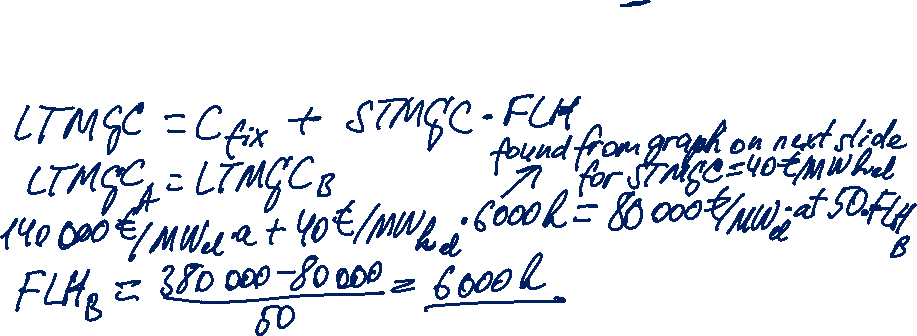 LTMGC = C fix + STMGC · FLH
found from graph on next slide
for STMGC = 40 €/MWh el
LTMGC A = LTMGC B
140 000 €/MW el · a + 40 €/MWh el · 6000 h = 80 000 €/MW el · a + 50 · FLH B
FLH B = 380 000 - 80 000 / 50 = 6000 h